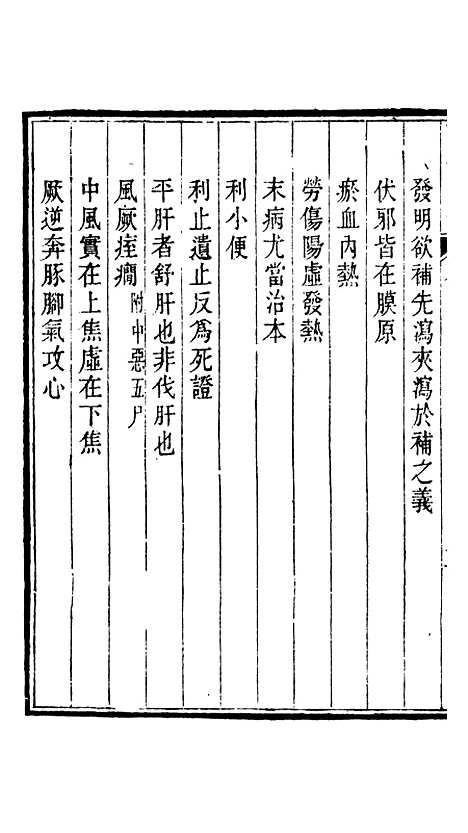 發明欲補先瀉夾瀉於補之義
伏邪皆在膜原
瘀血內熱
勞傷陽虛發熱
末病尤當治本
利小便
利止遺止反爲死證
平肝者舒肝也非伐肝也
風厥痙癇附中惡五尸
中風實在上焦虛在下焦
厥逆奔豚腳氣攻心